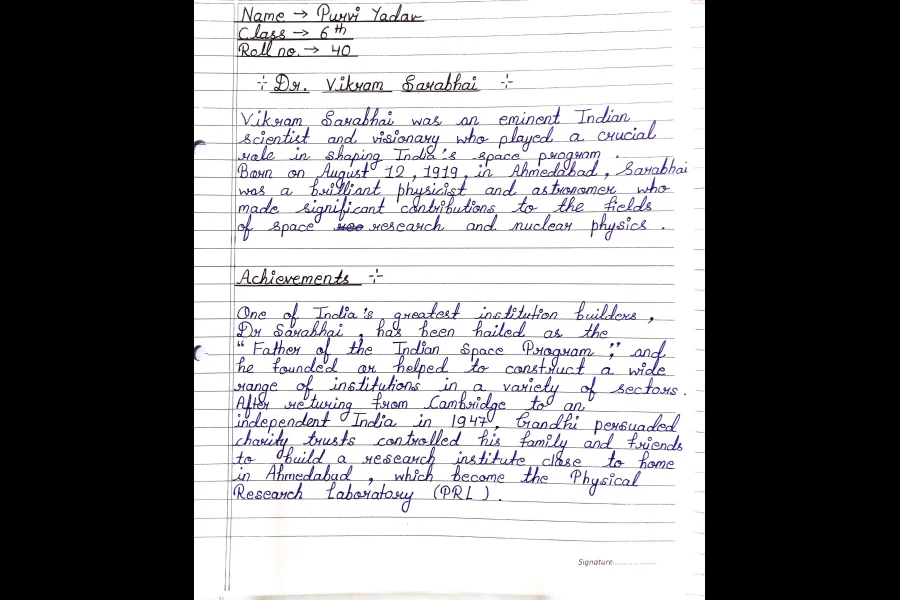 Name → Purvi Yadav
Class → 6th
Roll no. → 40
÷ Dr. Vikram Sarabhai ÷
Vikram Sarabhai was an eminent Indian
scientist and visionary who played a crucial
role in shaping India's space program.
Born on August 12, 1919, in Ahmedabad, Sarabhai
was a brilliant physicist and astronomer who
made significant contributions to the fields
of space research and nuclear physics.
Achievements ÷
One of India's greatest institution builders,
Dr Sarabhai, has been hailed as the
"Father of the Indian Space Program," and
he founded or helped to construct a wide
range of institutions in a variety of sectors.
After returing from Cambridge to an
independent India in 1947, Gandhi persuaded
charity trusts controlled his family and friends
to build a research institute close to home
in Ahmedabad, which become the Physical
Research Laboratory (PRL).
Signature....................